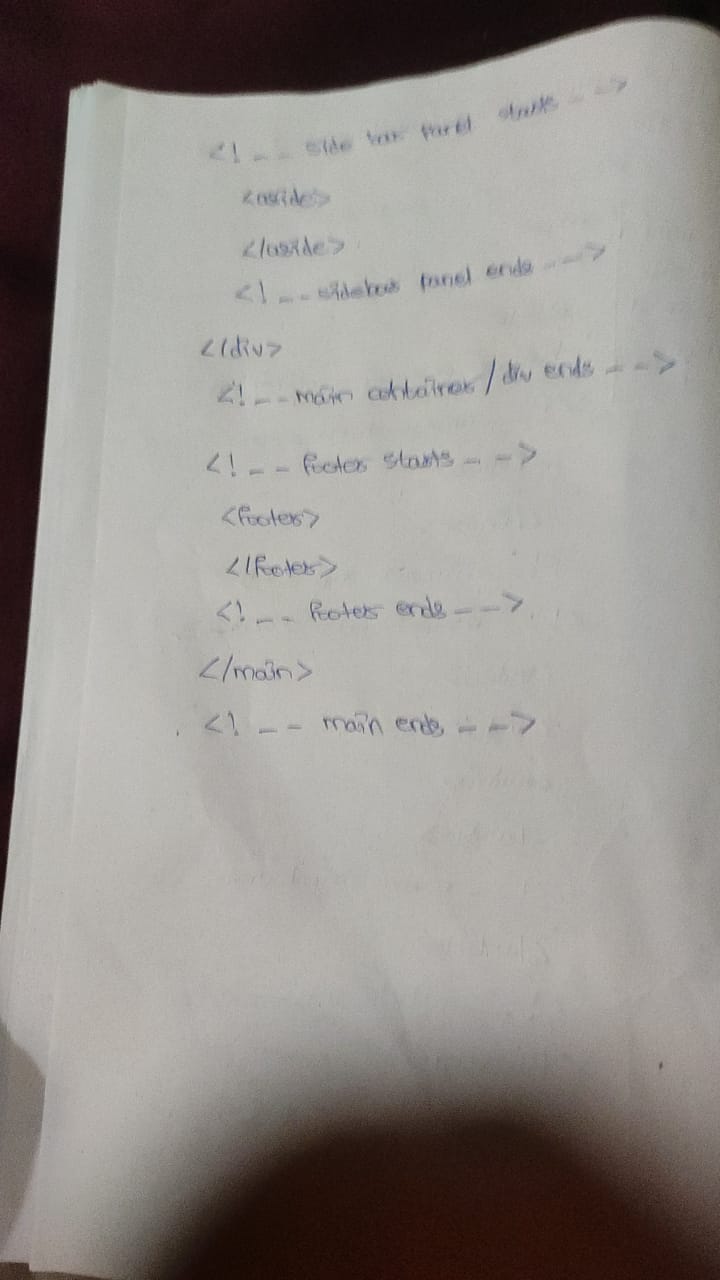 <!-- - side bar panel starts - -->
<aside>
</aside>
<!-- - sidebar panel ends - -->
</div>
<!-- - main container/div ends - -->
<!-- - footer starts - -->
<footer>
</footer>
<!-- - footer ends - -->
</main>
<!-- - main ends - -->